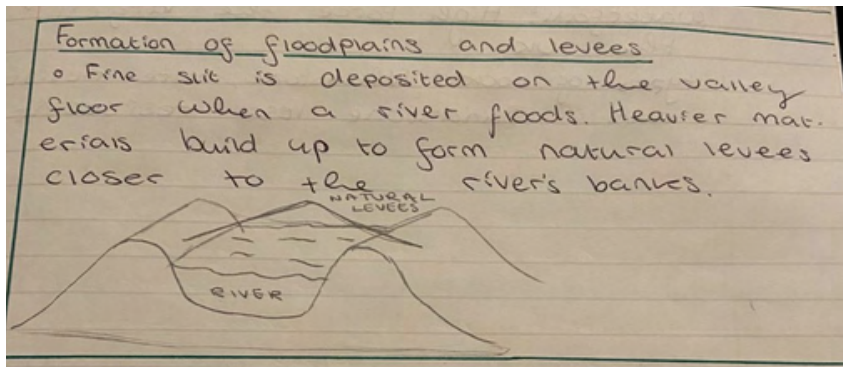 Formation of floodplains and levees
• Fine silt is deposited on the valley
floor when a river floods. Heavier mat-
erials build up to form natural levees
closer to the river's banks.
NATURAL
LEVEES
RIVER